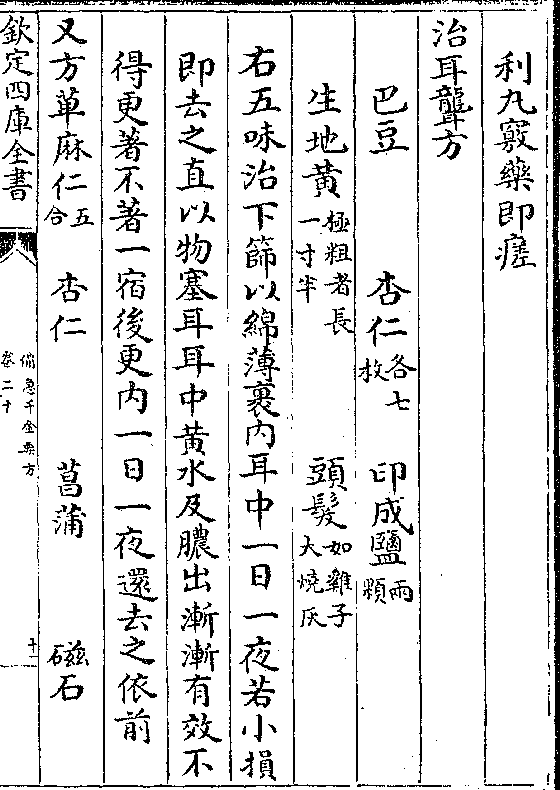 利九竅藥即瘥
治耳聾方
巴豆 杏仁各七枚 印成鹽兩顆
生地黃極粗者長一寸半 頭髮如雞子大燒灰
右五味治下篩以綿薄裹内耳中一日一夜若小損
即去之直以物塞耳耳中黃水及膿出漸漸有效不
得更著不著一宿後更内一日一夜還去之依前
又方萆麻仁五合 杏仁 菖蒲 磁石
欽定四庫全書
備急千金要方
卷二十
十一